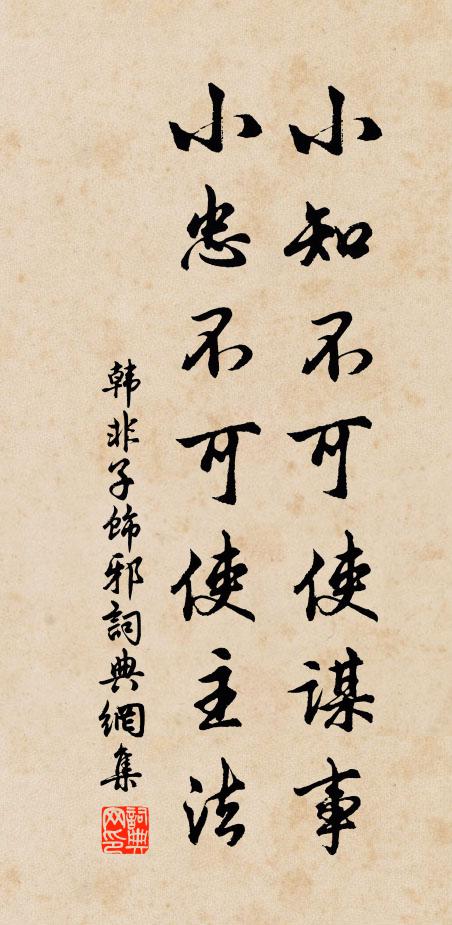 小知不可使谋事
小忠不可使主法
韩非子饰邪词典網集
詞典网印